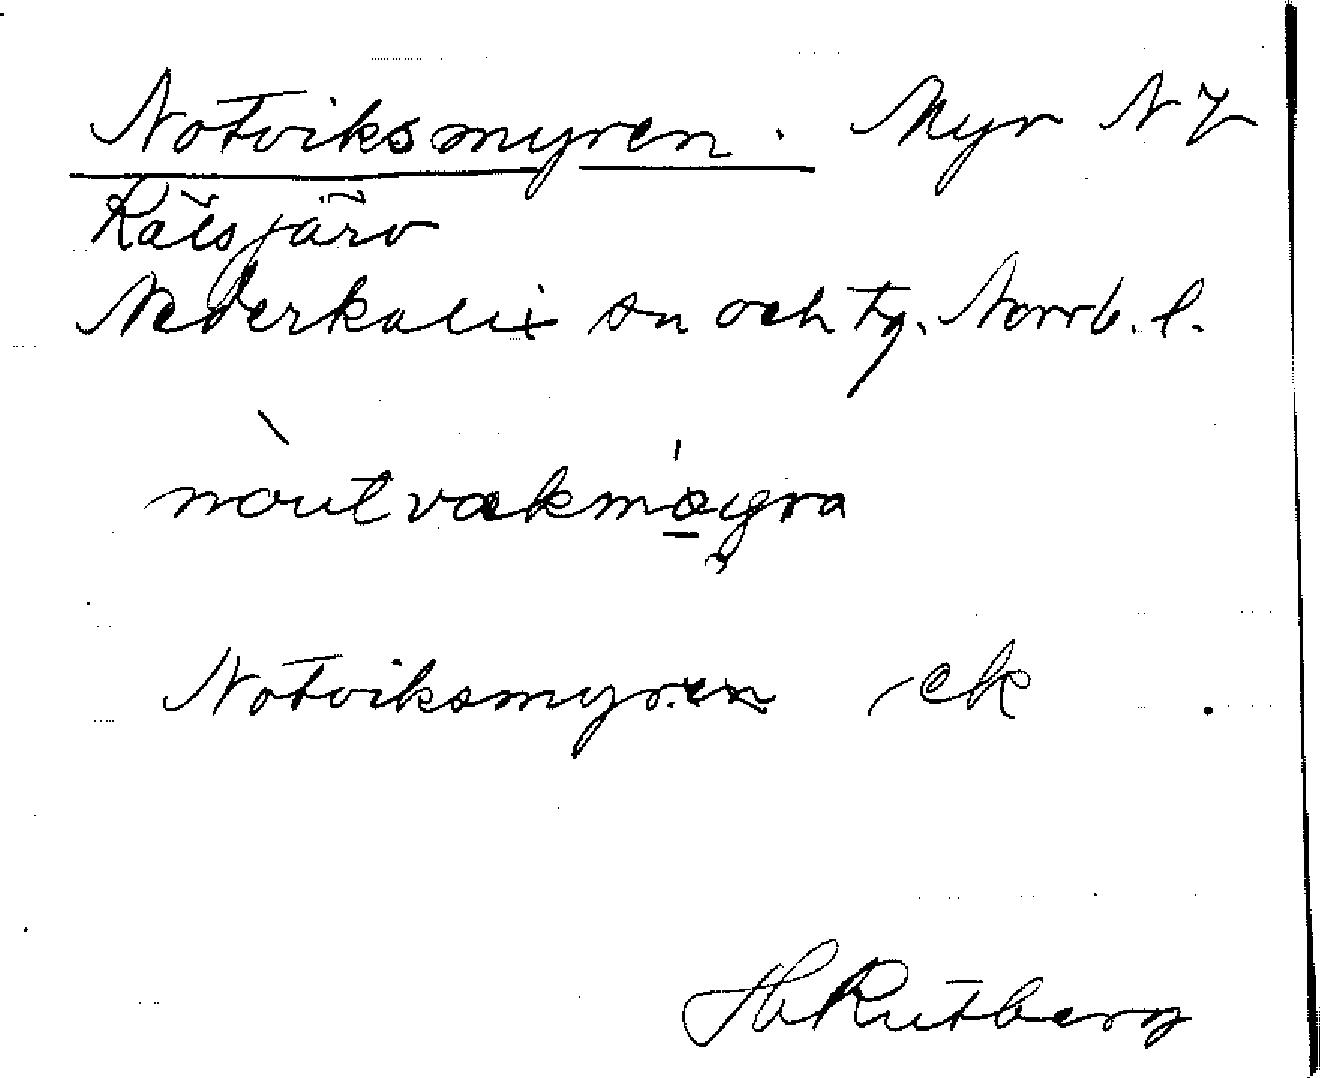 Notviksmyren. Myr N Z
Rälsjärv
Nederkalix sn och tg. Norrb. l.
nòutvakmöyra
Notviksmyren ek
Hb Rutberg